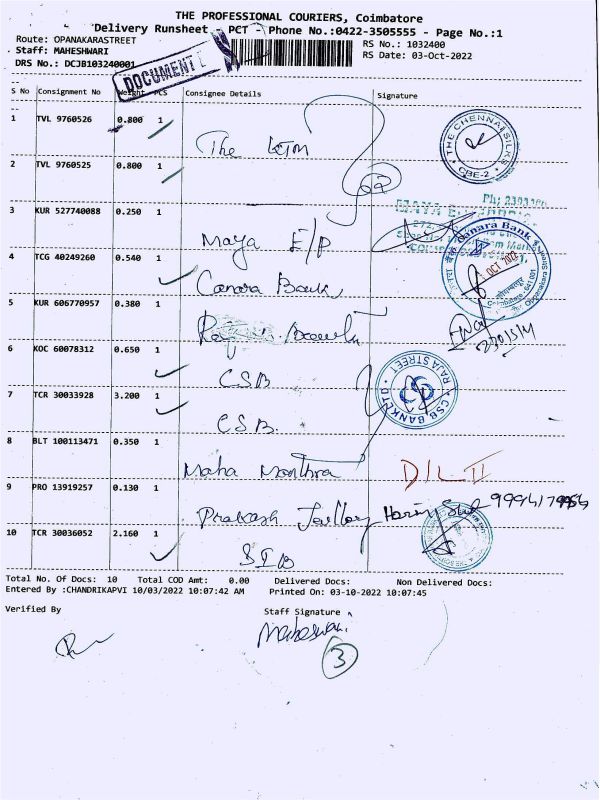 THE PROFESSIONAL COURIERS, Coimbatore
Delivery Runsheet - PCT - Phone No.:0422-3505555 - Page No.:1
Route: OPANAKARASTREET RS No.: 1032400
Staff: MAHESHWARI RS Date: 03-Oct-2022
DRS No.: DCJB103240001
DOCUMENT
S No Consignment No Weight PCS Consignee Details Signature
1 TVL 9760526 0.800 1 The
THE CHENNAI SILKS
CBE-2
2 TVL 9760525 0.800 1
3 KUR 527740088 0.250 1 Maya E/P
4 TCG 40249260 0.540 1 Canara Bank
Canara Bank
OCT 2022
5 KUR 606770957 0.380 1
6 KOC 60078312 0.650 1 CSB
CSB BANK LTD
RAJA STREET
7 TCR 30033928 3.200 1 CSB.
8 BLT 100113471 0.350 1 Maha Manthra
9 PRO 13919257 0.130 1 Prakash
10 TCR 30036052 2.160 1 SIB
Total No. Of Docs: 10 Total COD Amt: 0.00 Delivered Docs: Non Delivered Docs:
Entered By :CHANDRIKAPVI 10/03/2022 10:07:42 AM Printed On: 03-10-2022 10:07:45
Verified By Staff Signature
3